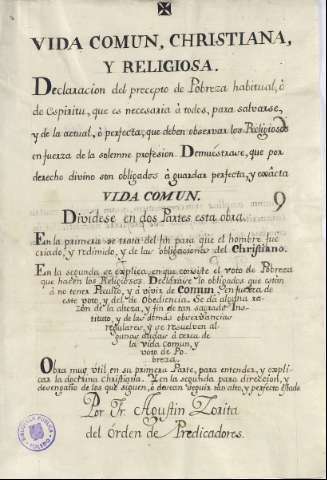 VIDA COMUN, CHRISTIANA,
Y RELIGIOSA.
Declaracion del precepto de Pobreza habitual, ò
de Espiritu, que es necesaria à todos, para salvarse,
y de la actual, ò perfecta, que deben observar los Religiosos
en fuerza de la solemne profesion. Demuéstrase, que por
derecho divino son obligados à guardar perfecta, y exacta
VIDA COMUN.
Divídese en dos Partes esta obra.
En la primera se trata del fin para que el hombre fue
criado, y redimido, y de las obligaciones del Christiano.
En la segunda se explica, en que consiste el voto de Pobreza
que hacen los Religiosos. Declárase lo obligados que están
à no tener Peculio, y à vivir de Comun, en fuerza de
este voto, y del de Obediencia. Se dá alguna ra-
zon de la alteza, y fin de tan sagrado Insti-
tuto, y de las demás observancias
regulares, y se resuelven al-
gunas dudas à cerca de
la Vida comun, y
voto de Po-
breza.
Obra muy útil en su primera Parte, para entender, y expli-
car la doctrina Christiana. Y en la segunda para direccion, y
desengaño de los que siguen, ò desean seguir un alto, y perfecto estado
Por Fr. Agustin Zorita
del Orden de Predicadores.